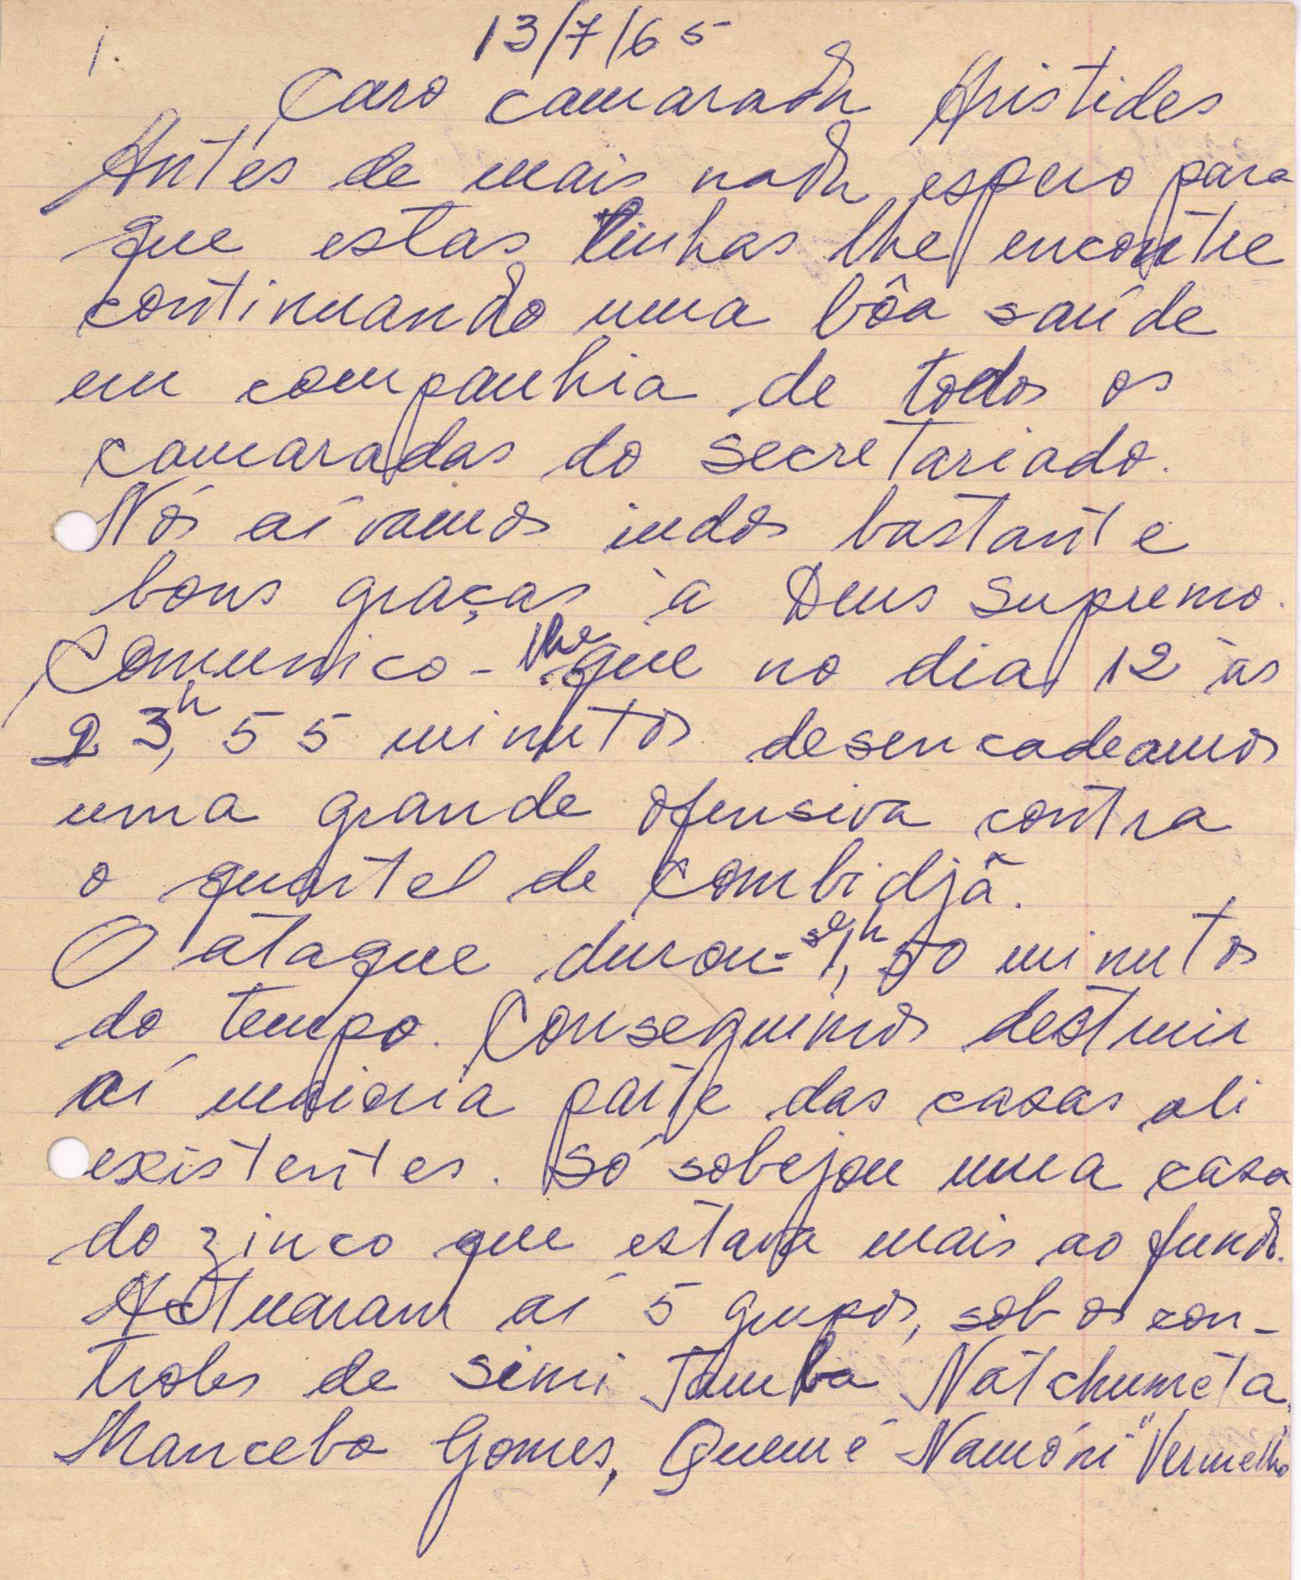 1.
13/7/65
Caro camarada Aristides
Antes de mais nada espero para
que estas linhas lhe encontre
continuando uma bôa saúde
em companhia de todos os
camaradas do secretariado.
Nós aí vamos indos bastante
bons graças à Deus Supremo.
Comunico-lhe que no dia 12 às
23,h 55 minutos desencadeamos
uma grande ofensiva contra
o quartel de Combidjã.
O ataque durou-se 1,h 50 minutos
do tempo. Conseguimos destruir
aí maioria parte das casas ali
existentes. Só sobejou uma casa
do zinco que estava mais ao fundo.
Actuaram aí 5 grupos, sob os con-
troles de Simi Tamba Natchumeta,
Mancebo Gomes, Quemé Namóni "Vermelho"